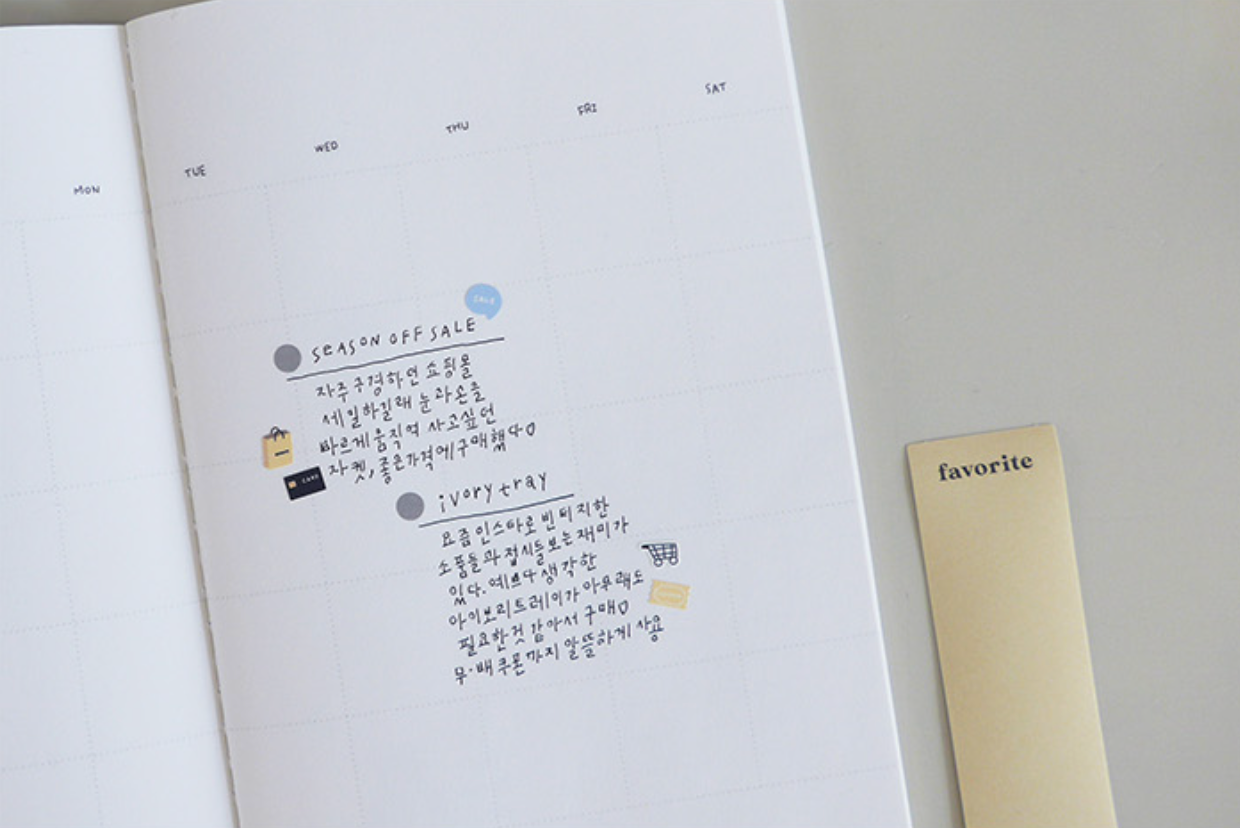 MON
TUE
WED
THU
FRI
SAT
SALE
SEASON OFF SALE
자주 구경하던 쇼핑몰
세일하길래 눈과 손을
빠르게 움직여 사고싶던
자켓, 좋은가격에 구매했다♡
CARD
ivory tray
요즘 인스타로 빈티지한
소품들과 접시들 보는 재미가
있다. 예쁘다 생각한
아이보리트레이가 아무래도
필요한것 같아서 구매♡
무·배 쿠폰까지 알뜰하게 사용
favorite